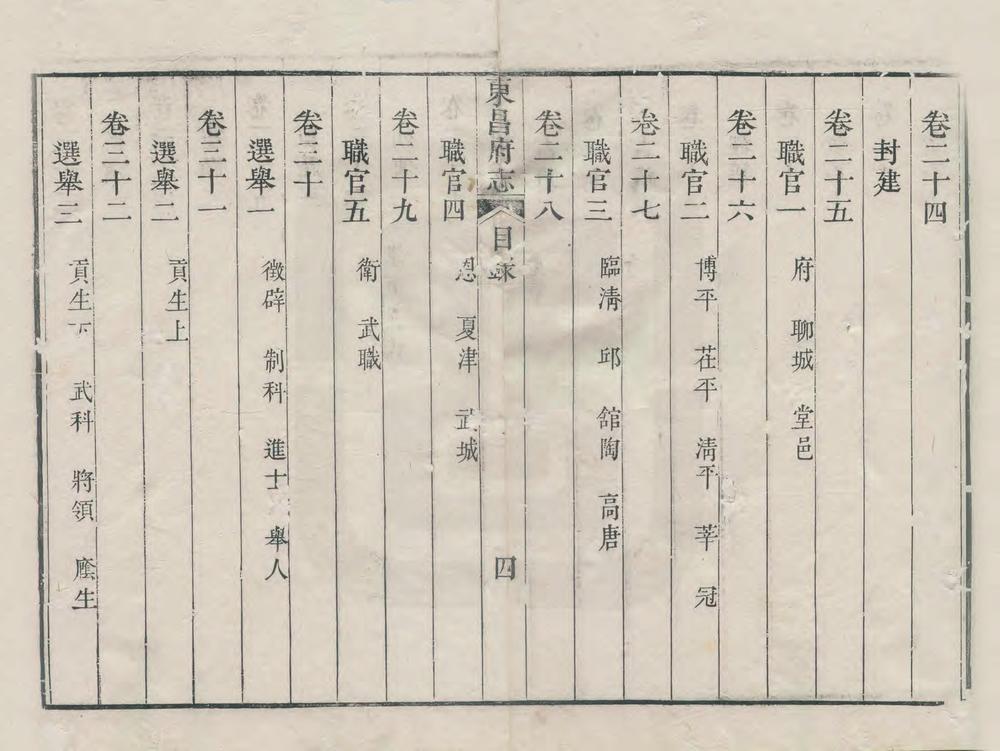 卷二十四
封建
卷二十五
職官一 府 聊城 堂邑
卷二十六
職官二 博平 茌平 淸平 莘 冠
卷二十七
職官三 臨淸 邱 舘陶 高唐
卷二十八
東昌府志 目錄 四
職官四 恩 夏津 武城
卷二十九
職官五 衛 武職
卷三十
選舉一 徵辟 制科 進士 舉人
卷三十一
選舉二 貢生上
卷三十二
選舉三 貢生下 武科 將領 廕生